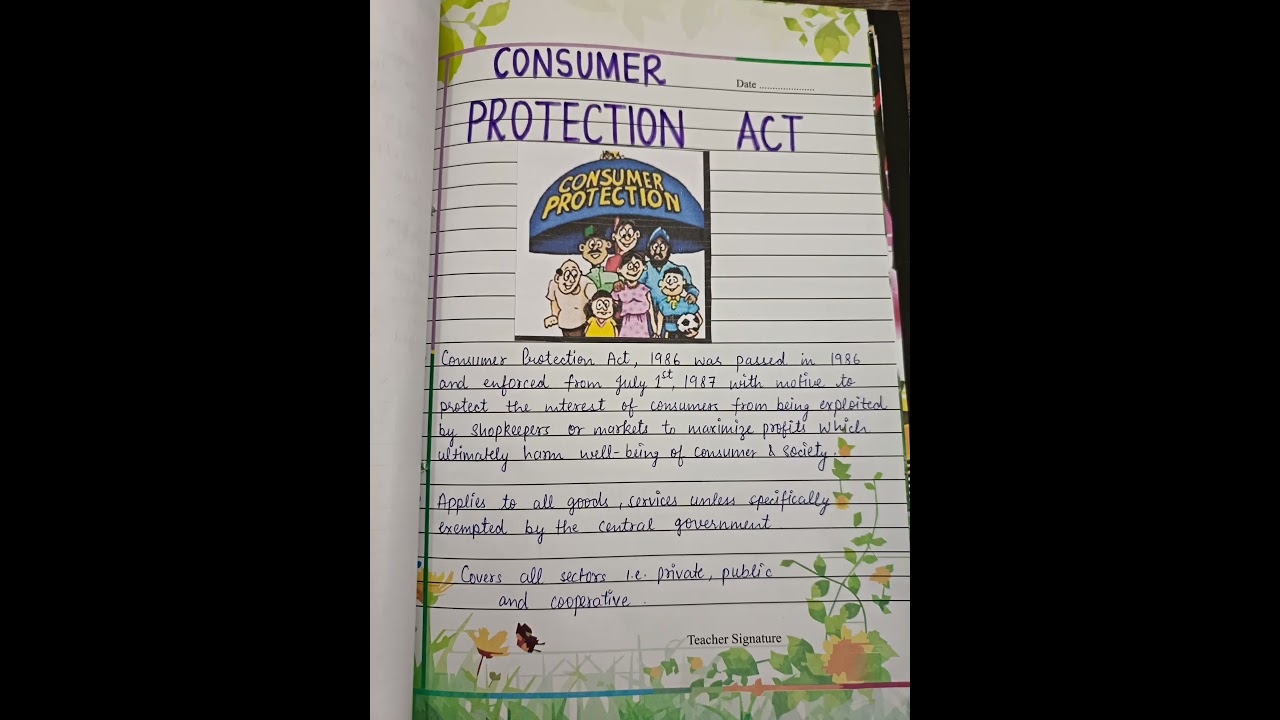 CONSUMER
Date .....................
PROTECTION ACT
CONSUMER
PROTECTION
Consumer Protection Act, 1986 was passed in 1986
and enforced from July 1st, 1987 with motive to
protect the interest of consumers from being exploited
by shopkeepers or markets to maximize profits which
ultimately harm well-being of consumer & society.
Applies to all goods, services unless specifically
exempted by the central government
Covers all sectors i.e. private, public
and cooperative.
Teacher Signature